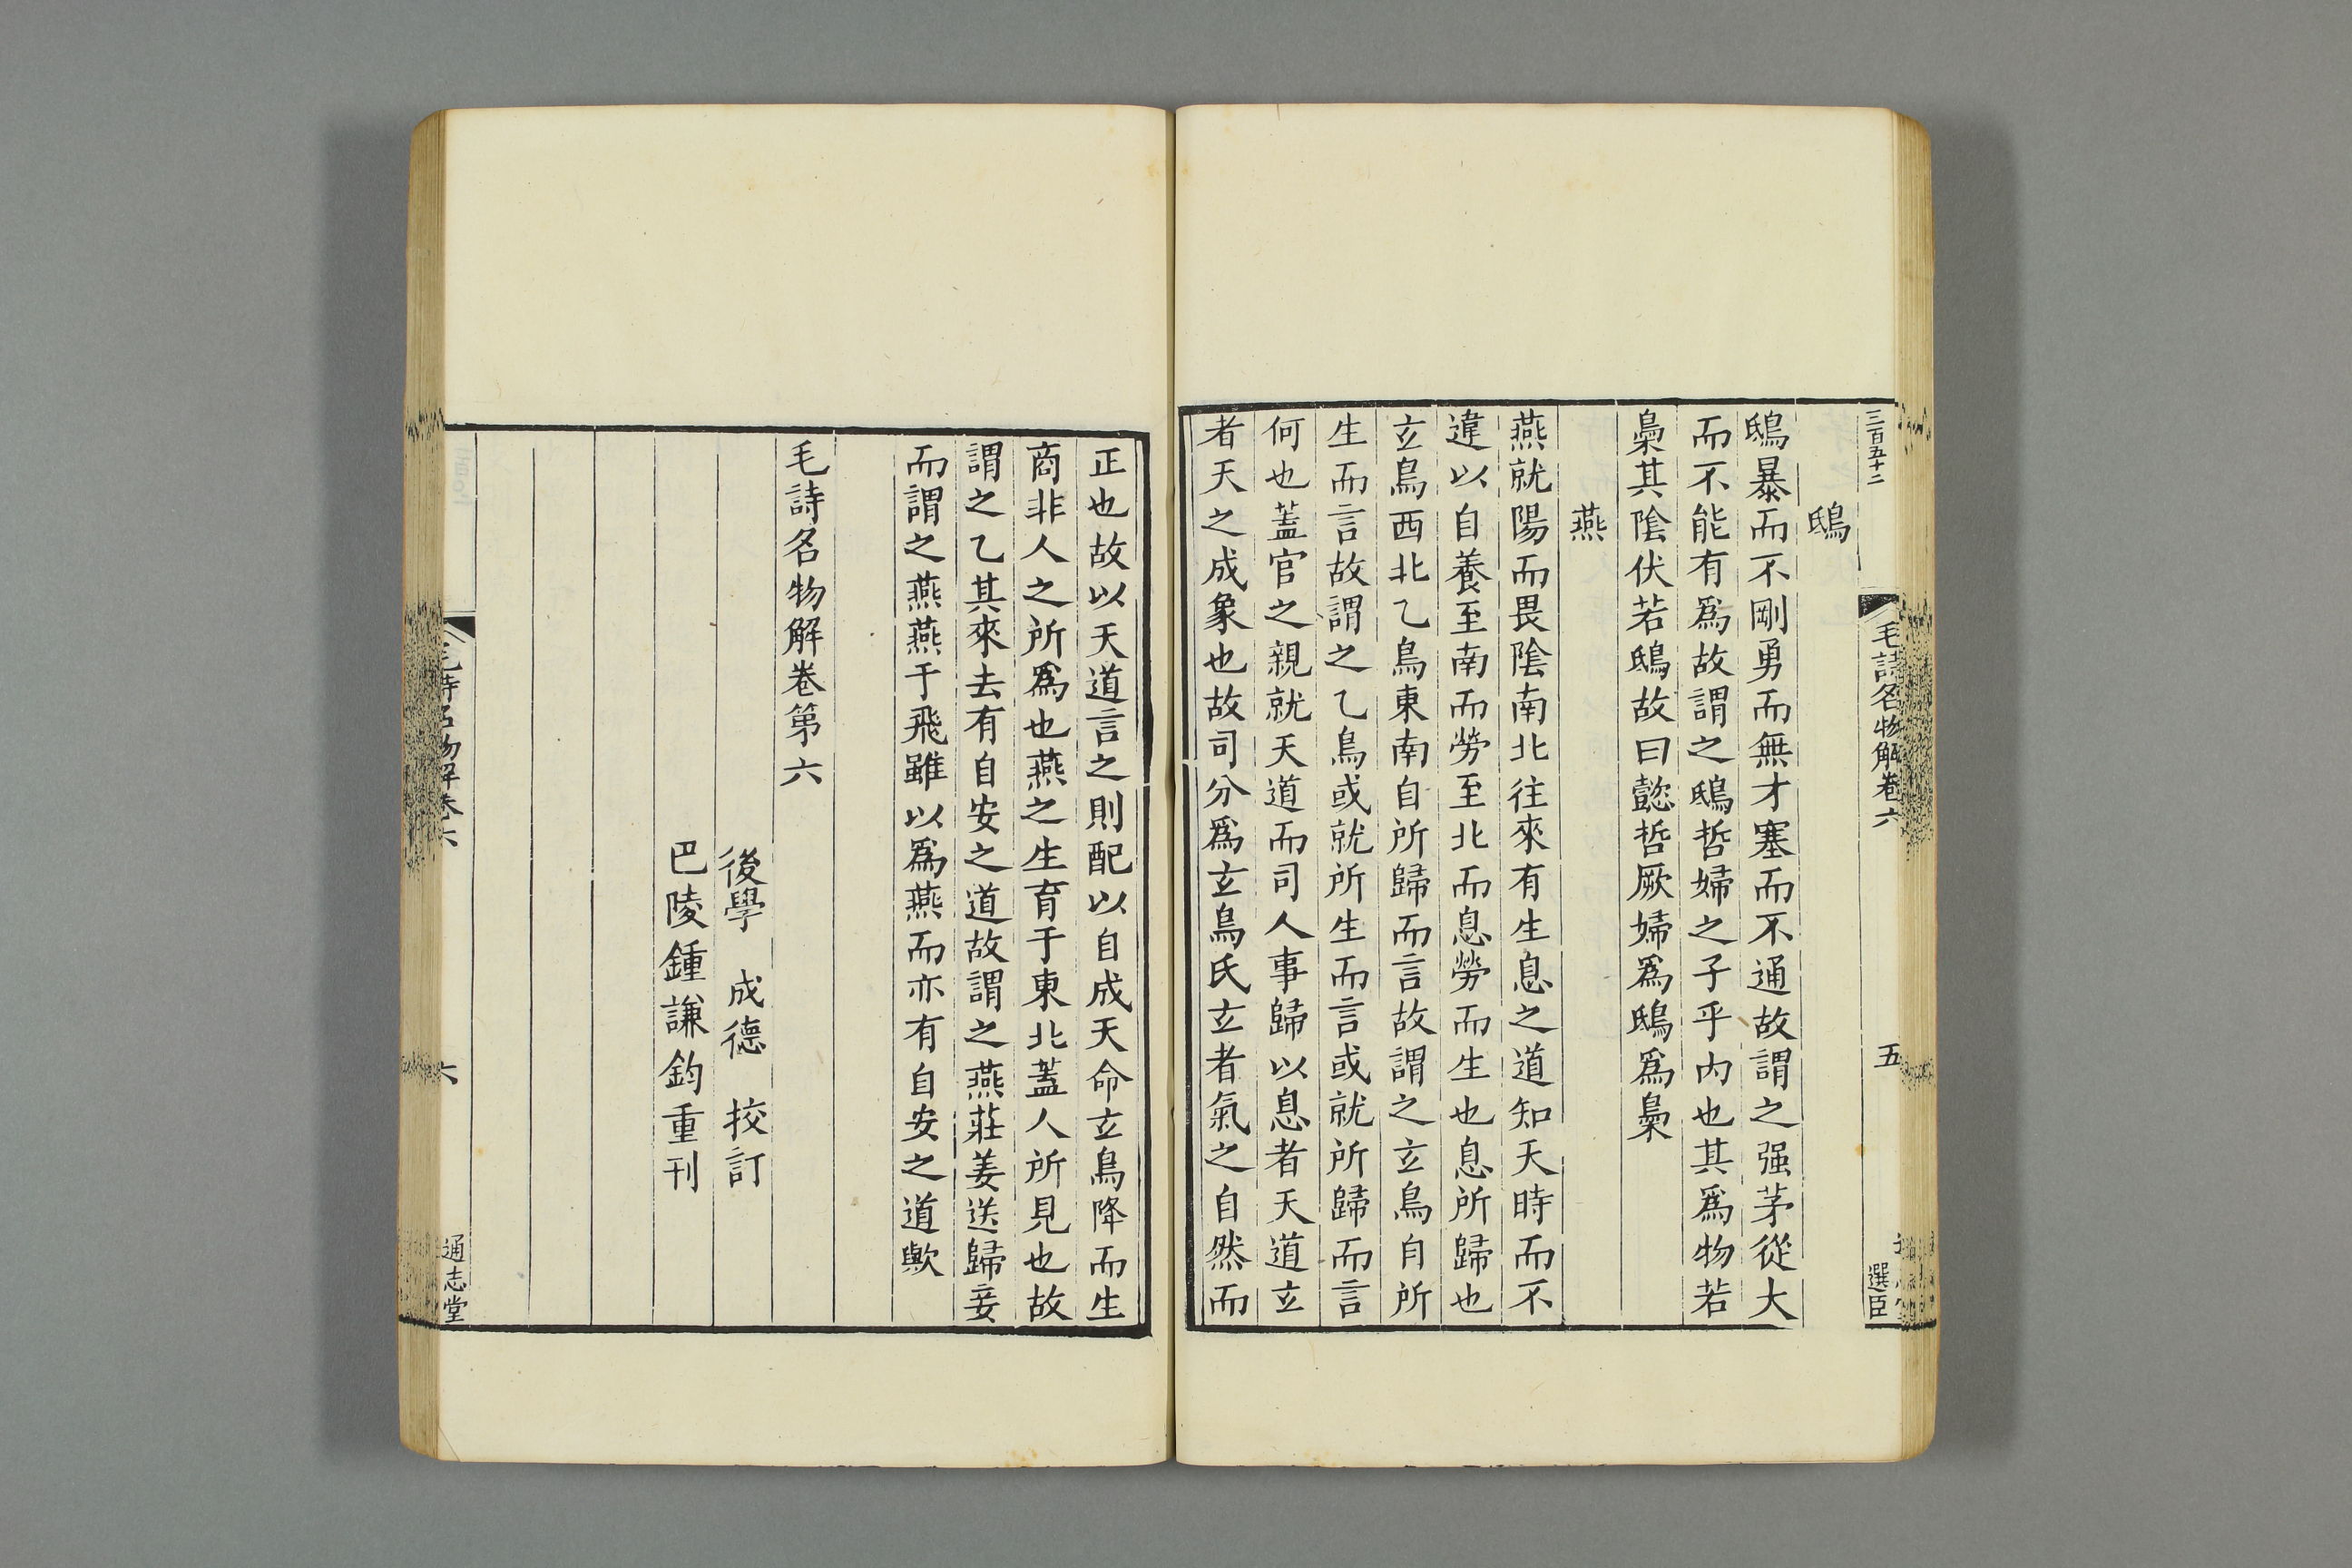 三百五十二
毛詩名物解卷六
五
選臣
鴟
鴟暴而不剛勇而無才塞而不通故謂之强茅從大
而不能有爲故謂之鴟哲婦之子乎内也其爲物若
梟其陰伏若鴟故曰懿哲厥婦爲鴟爲梟
燕
燕就陽而畏陰南北往來有生息之道知天時而不
違以自養至南而勞至北而息勞而生也息所歸也
玄鳥西北乙鳥東南自所歸而言故謂之玄鳥自所
生而言故謂之乙鳥或就所生而言或就所歸而言
何也蓋官之親就天道而司人事歸以息者天道玄
者天之成象也故司分爲玄鳥氏玄者氣之自然而
正也故以天道言之則配以自成天命玄鳥降而生
商非人之所爲也燕之生育于東北蓋人所見也故
謂之乙其來去有自安之道故謂之燕莊姜送歸妾
而謂之燕燕于飛雖以爲燕而亦有自安之道歟
毛詩名物解卷第六
後學 成德 挍訂
巴陵鍾謙鈞重刊
毛詩名物解卷六
六
通志堂